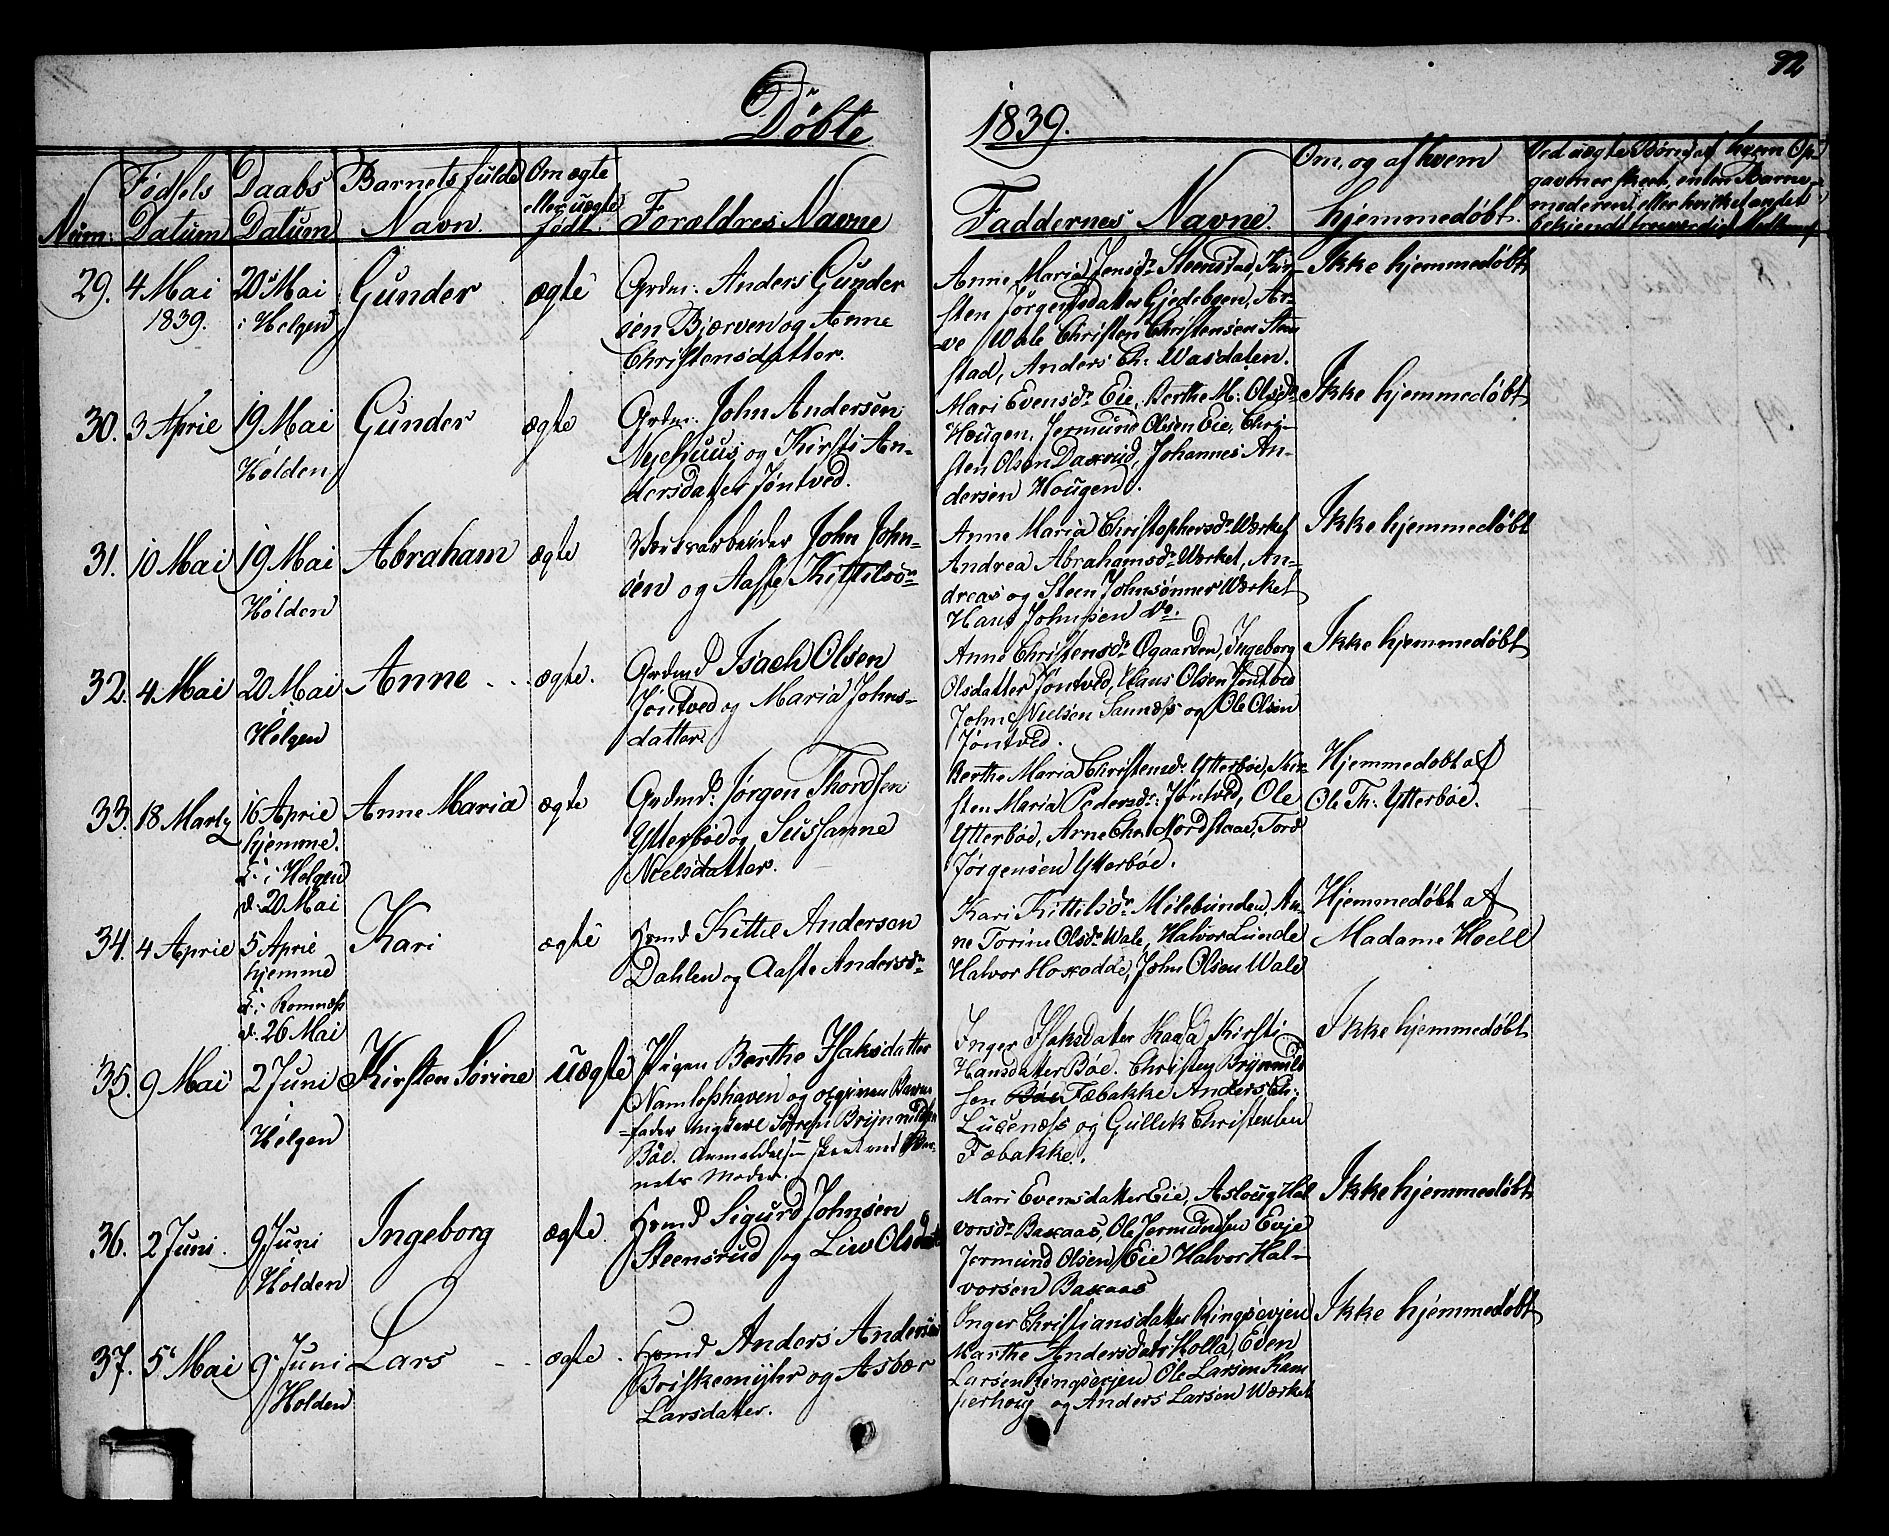 92
Døbte
1839.
Num:
Fødsels
Datum
Daabs
Datum
Barnets fulde
Navn.
Om ægte
eller uægte
født.
Forældres Navne
Faddernes Navne.
Om, og af hvem
hjemmedøbt.
Ved uægte Børn, af hvem Op-
gaven er skeet, enten Barne-
moderen, eller hvilket andet
bekjendt troeværdig Medhem
29.
4 Mai
1839.
20 Mai
i Helgen
Gunder
ægte
Grdm: Anders Gunder
sen Bjærven og Anne
Christensdatter.
Anne Maria Jensdr Steenstad, Kir-
sten Jørgensdatter Gjedeboen, Ar-
ve Wale Christen Christensen Steen
stad, Anders Ch: Wasdalen.
Ikke hjemmedøbt
30.
3 April
19 Mai
Holden
Gunder
ægte
Grdm: John Andersen
Nyehuus og Kirsti An-
dersdatter Jøntved.
Mari Evensdr Eie, Berthe M: Olsdr
Hougen, Jermund Olsen Eie, Chri-
sten Olsen Daxrud, Johannes An-
dersen Hougen.
Ikke hjemmedøbt
31.
10 Mai
19 Mai
Holden
Abraham
ægte
Værksarbeider John John-
sen og Aaste Kittilsdr
Anne Maria Christophersdr Wærket
Andrea Abrahamsdr Wærket, An-
dreas og Steen Johnsønner Wærket
Hans Johnsen do.
Ikke hjemmedøbt
32.
4 Mai
20 Mai
Helgen
Anne
ægte.
Grdmd Isach Olsen
Jøntved og Maria Johns-
datter.
Anne Christensdr Ogaarden, Ingeborg
Olsdatter Jøntved, Hans Olsen Jøntved
John Nielsen Saunæss og Ole Olsen
Jøntved.
Ikke hjemmedøbt
33.
18 Marty
16 April
hjemme.
d: i Helgen
d: 20 Mai
Anne Maria
ægte
Grdmd: Jørgen Thordsen
Ytterbøe og Sussanne
Nielsdatter.
Berthe Maria Christensdr Ytterbøe, Kir-
sten Maria Pedersdr: Jøntved, Ole
Ytterbøe, Arne Chr. Nordstaae, Tord
Jørgensen Ytterbøe.
Hjemmedøbt af
Ole Th: Ytterbøe.
34.
4 April
5 April
hjemme
d: i Romnæss
d: 26 Mai
Kari
ægte
Hsmd Kittil Andersen
Dahlen og Aaste Andersdr
Kari Kittilsdr Milebunden, An-
ne Torine Olsdr Wale, Halvor Lunde
Halvor Hoxodde, John Olsen Wale
Hjemmedøbt af
Madame Hoell
35.
9 Mai
2 Juni
i
Helgen
Kirsten Sørine
uægte
Pigen Berthe Isaksdatter
Namloshaven og opgiven Barne-
fader Ungkarl Søfren Brynnild
Bøe. Anmeldelsen skeet ved Bar-
nets Moder.
Inger Isaksdatter Kaasa, Kirsti
Hansdatter Bøe. Christen Brynnild
sen Fæbakke Anders Ch:
Lucenæss og Gullik Christensen
Fæbakke.
Ikke hjemmedøbt
36.
2 Juni.
9 Juni
Holden
Ingeborg
ægte.
Hsmd Sigurd Johnsen
Steensrud og Liv Olsdatter
Mari Evensdatter Eie, Asloug Hal
vorsdr Baxaas, Ole Jermundsen Evje
Jermund Olsen Eie Halvor Hal-
vorsen Baxaas
Ikke hjemmedøbt
37.
5 Mai
9 Juni
Holden
Lars
ægte.
Hsmd Anders Andersen
Briskemyhr og Asbær
Larsdatter.
Inger Christiansdatter Ringsevjen
Marthe Andersdatr Holla, Even
Larsen Ringsevjen Ole Larsen Kam
perhoug og Anders Larsen Wærket
Ikke hjemmedøbt